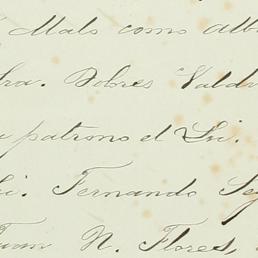 Malo como alb
Sra. Dolores Valdi
patrono el Sr.
Sr. Fernando Se
Juan N. Flores,